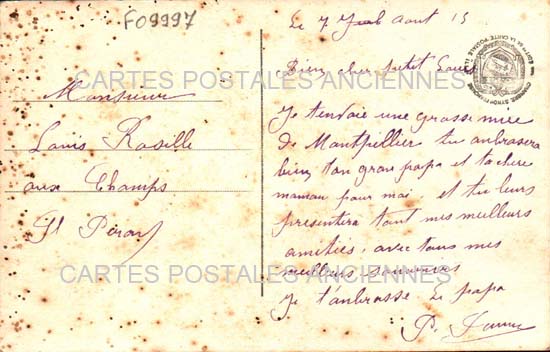 F09997
Le 7 Juil aout 15
CARTES POSTALES ANCIENNES
Bien cher petit Louis
Monsieur
Louis Rosille
aux Champs
St Péray
Je tenvoie une grosse mie
de Montpellier tu anbrasera
bien ton gran papa et ta chere
maman pour moi et tu leurs
presentera tout mes meilleurs
amitiées avec tous mes
meilleurs souvenirs
CARTES POSTALES ANCIENNES
Je t'anbrasse le papa
P.